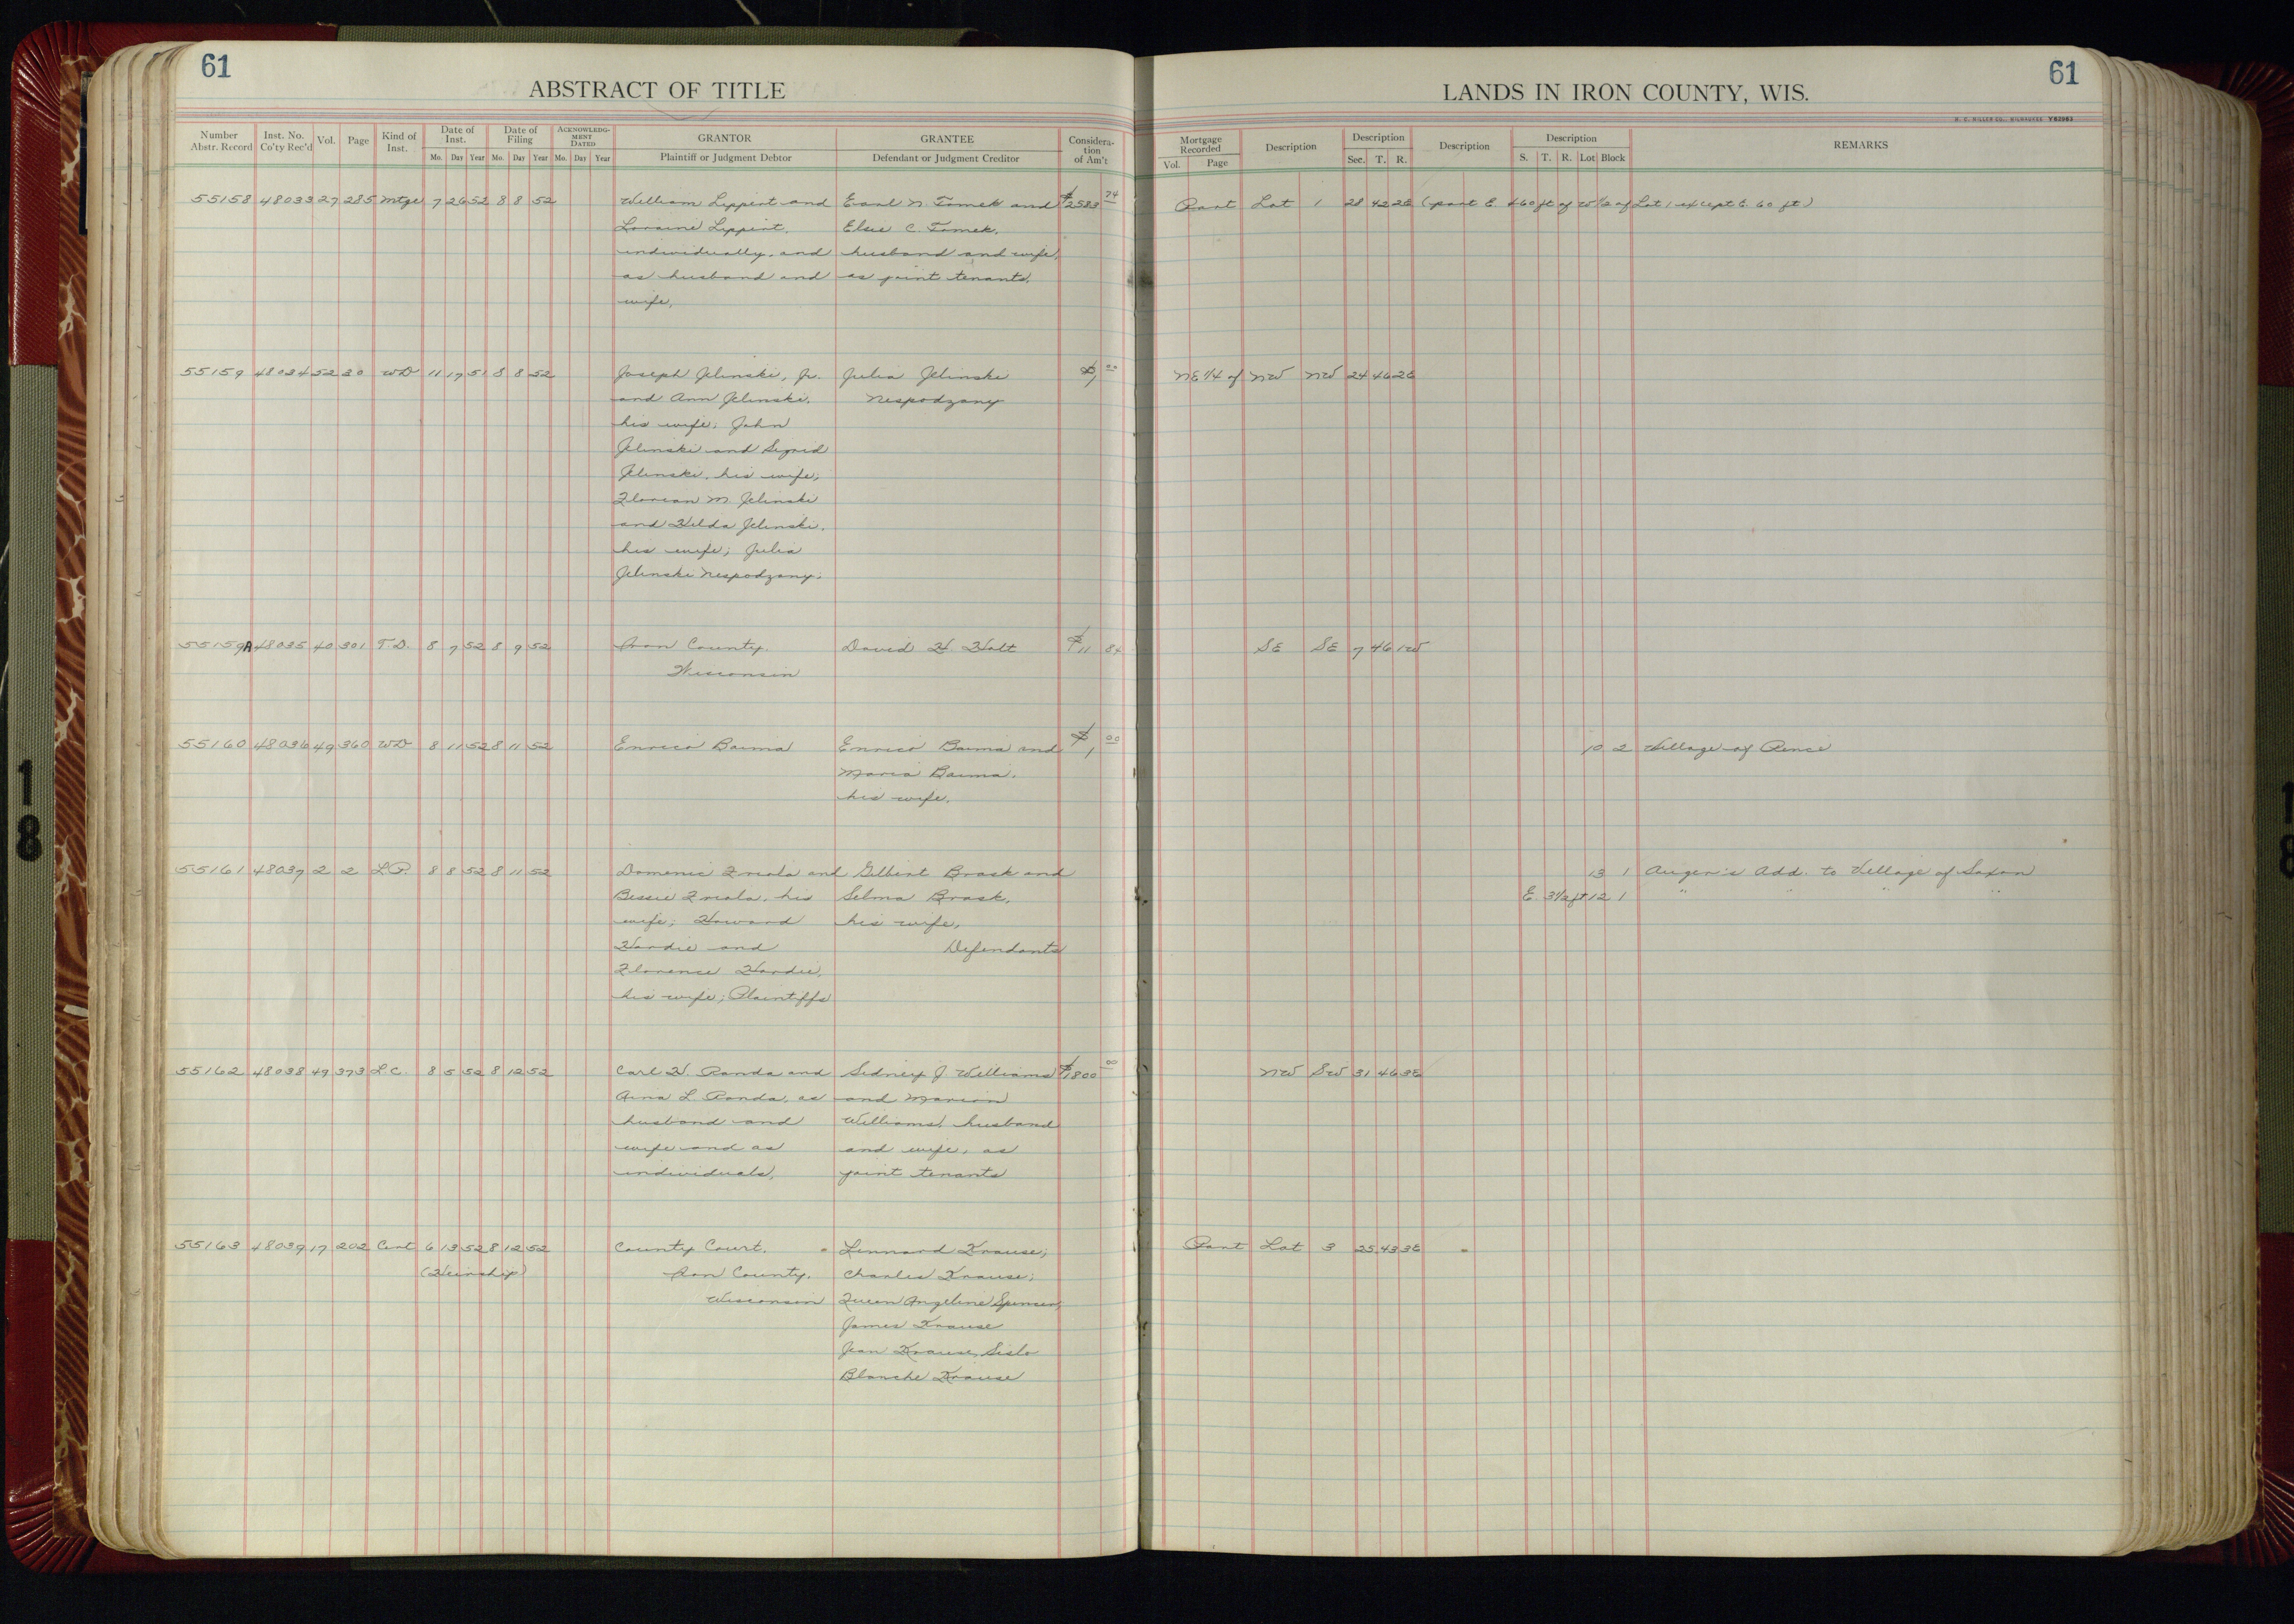 61
ABSTRACT OF TITLE
Number Abstr. Record Inst. No. Co'ty Rec'd Vol. Page Kind of Inst. Date of Inst. Date of Filing ACKNOWLEDGMENT DATED GRANTOR GRANTEE Consideration of Am't
Mo. Day Year Mo. Day Year Mo. Day Year Plaintiff or Judgment Debtor Defendant or Judgment Creditor
55158 48033 27 285 Mtge 7 26 52 8 8 52 William Lippert and Earl N. Tomek and $2583 74
Loraine Lippert, Elsie C. Tomek,
individually, and husband and wife,
as husband and as joint tenants.
wife,
55159 48034 52 30 WD 11 17 51 8 8 52 Joseph Jelinski, Jr. Julia Jelinski $1 00
and Ann Jelinski, Nespodzany
his wife; John
Jelinski and Sigrid
Jelinski, his wife;
Florian M. Jelinski
and Hilda Jelinski,
his wife; Julia
Jelinski Nespodzany;
55159A 48035 40 301 T.D. 8 7 52 8 9 52 Iron County, David H. Holt $11 84
Wisconsin
55160 48036 49 360 WD 8 11 52 8 11 52 Enrico Baima Enrico Baima and $1 00
Maria Baima,
his wife.
55161 48037 2 2 L.P. 8 8 52 8 11 52 Domenic and Gilbert Brask and
Bessie his Selma Brask,
wife; Howard his wife,
Hardie and Defendants
Florence Hardie,
his wife; Plaintiffs
55162 48038 49 373 L.C. 8 5 52 8 12 52 Carl H. Randa and Sidney J. Williams $1800 00
Aina L. Randa, as and Marion
husband and Williams, husband
wife and as and wife, as
individuals, joint tenants
55163 48039 17 202 Cert 6 13 52 8 12 52 County Court, Lennard Krause;
(Heirship) Iron County, Charles Krause;
Wisconsin Queen Angeline Spencer;
James Krause
Jean Krause Sislo
Blanche Krause
61
LANDS IN IRON COUNTY, WIS.
H. C. MILLER CO., MILWAUKEE Y62983
Mortgage Recorded Description Description Description Description REMARKS
Vol. Page Sec. T. R. S. T. R. Lot Block
Part Lot 1 28 42 2E (part E. 460 ft of W½ of Lot 1 except E. 60 ft)
NE¼ of NW NW 24 46 2E
SE SE 7 46 1W
10 2 Village of Pence
13 1 Auger's Add. to Village of Saxon
E. 3½ ft 12 1 " " " "
NW SW 31 46 3E
Part Lot 3 25 43 3E
18